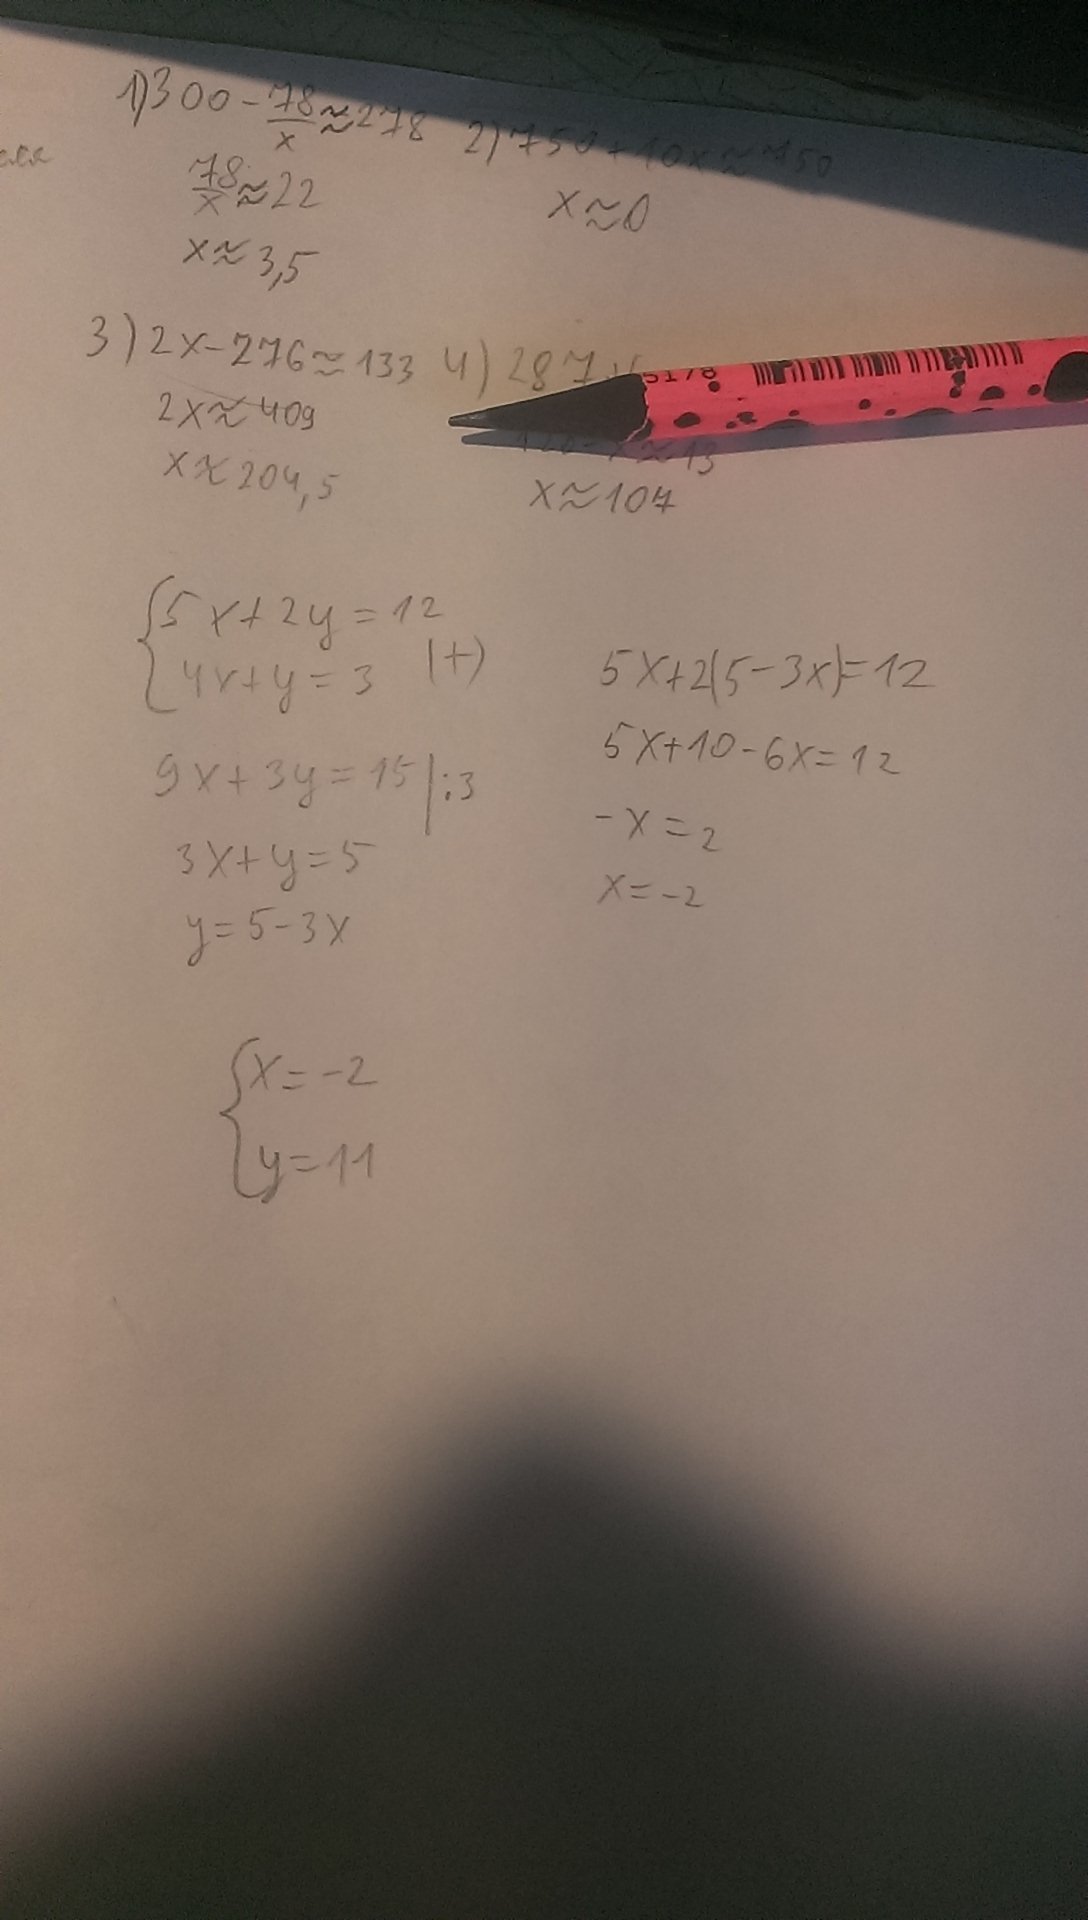 1) 300 - 78/x ≈ 278
78/x ≈ 22
x ≈ 3,5
2) 750 + 10x ≈ 750
x ≈ 0
3) 2x - 276 ≈ 133
2x ≈ 409
x ≈ 204,5
4) 287
5178
120 - x ≈ 13
x ≈ 107
5x + 2y = 12
4x + y = 3 (+)
9x + 3y = 15 | :3
3x + y = 5
y = 5 - 3x
5x + 2(5 - 3x) = 12
5x + 10 - 6x = 12
-x = 2
x = -2
x = -2
y = 11